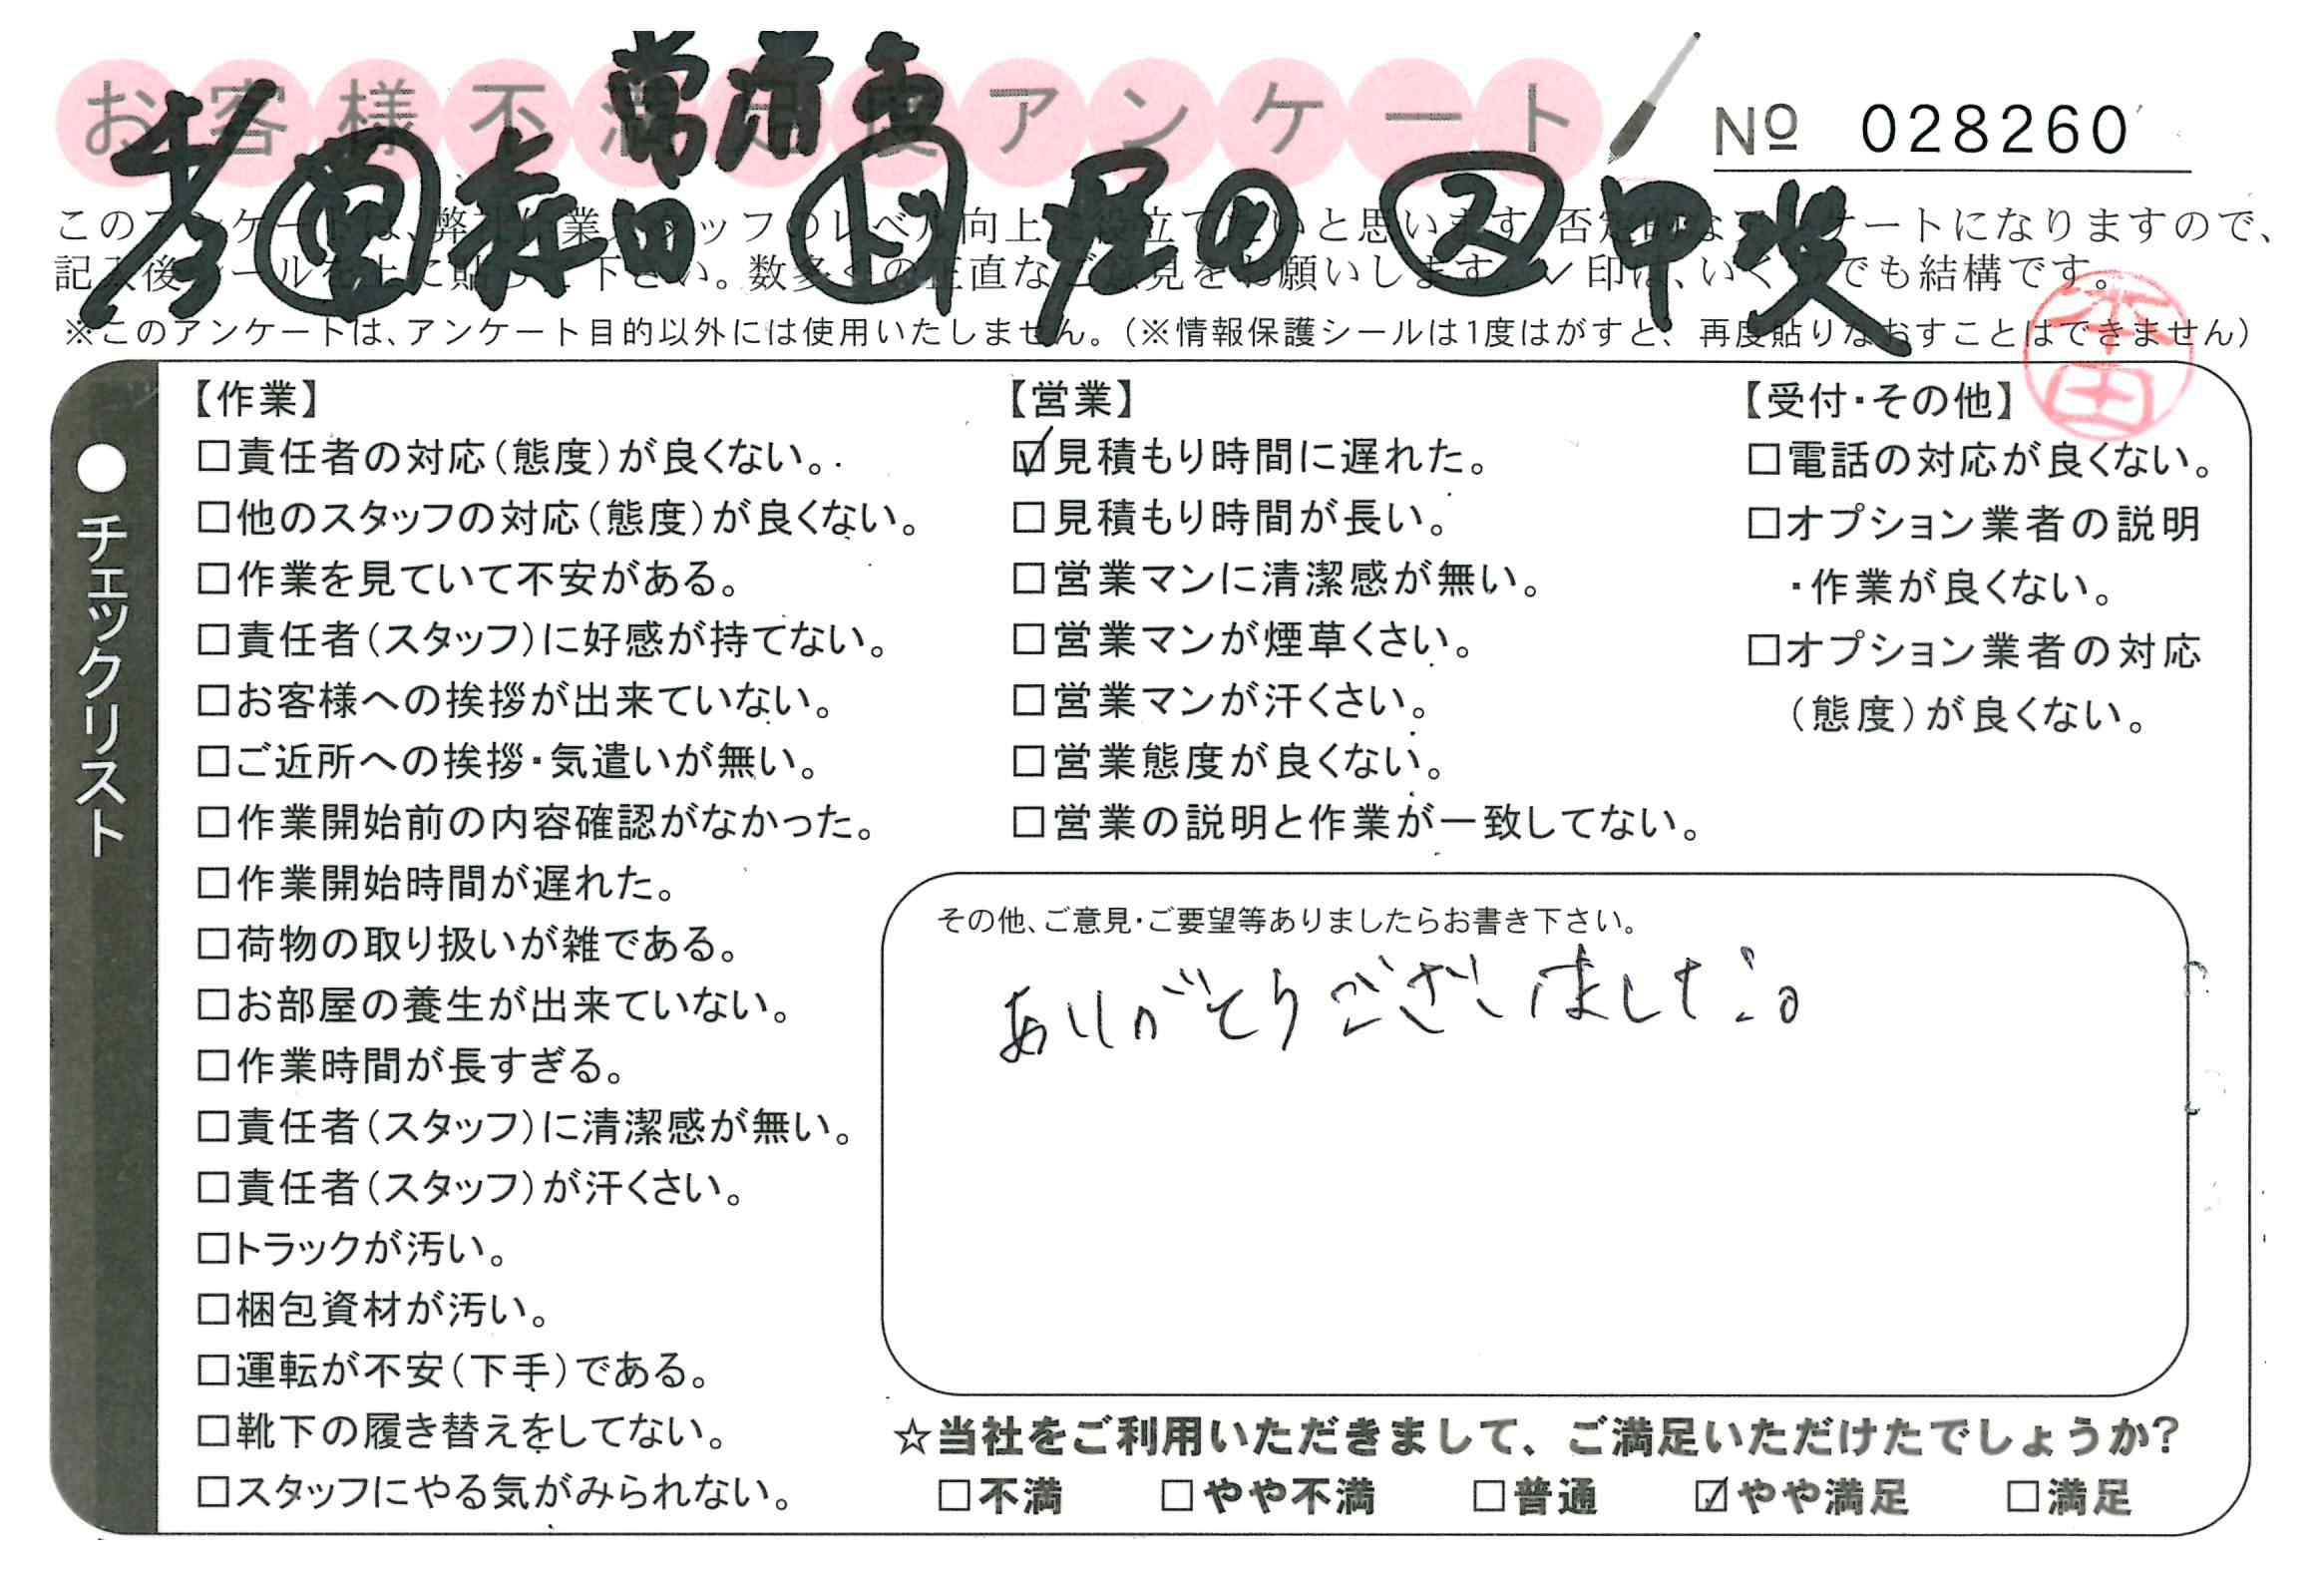 お客様不満足度アンケート
№ 028260
常滑市
営 森田 ト 理田 ス 甲斐
このアンケートは、弊社作業スタッフのレベル向上に役立てたいと思います。否定的なアンケートになりますので、
記入後シールを上に貼って下さい。数多くの正直なご意見をお願いします。✓印は、いくつでも結構です。
※このアンケートは、アンケート目的以外には使用いたしません。（※情報保護シールは1度はがすと、再度貼りなおすことはできません）
本田
●チェックリスト
【作業】
□責任者の対応（態度）が良くない。
□他のスタッフの対応（態度）が良くない。
□作業を見ていて不安がある。
□責任者（スタッフ）に好感が持てない。
□お客様への挨拶が出来ていない。
□ご近所への挨拶・気遣いが無い。
□作業開始前の内容確認がなかった。
□作業開始時間が遅れた。
□荷物の取り扱いが雑である。
□お部屋の養生が出来ていない。
□作業時間が長すぎる。
□責任者（スタッフ）に清潔感が無い。
□責任者（スタッフ）が汗くさい。
□トラックが汚い。
□梱包資材が汚い。
□運転が不安（下手）である。
□靴下の履き替えをしてない。
□スタッフにやる気がみられない。
【営業】
☑見積もり時間に遅れた。
□見積もり時間が長い。
□営業マンに清潔感が無い。
□営業マンが煙草くさい。
□営業マンが汗くさい。
□営業態度が良くない。
□営業の説明と作業が一致してない。
【受付・その他】
□電話の対応が良くない。
□オプション業者の説明
・作業が良くない。
□オプション業者の対応
（態度）が良くない。
その他、ご意見・ご要望等ありましたらお書き下さい。
ありがとうございました。
☆当社をご利用いただきまして、ご満足いただけたでしょうか？
□不満 □やや不満 □普通 ☑やや満足 □満足